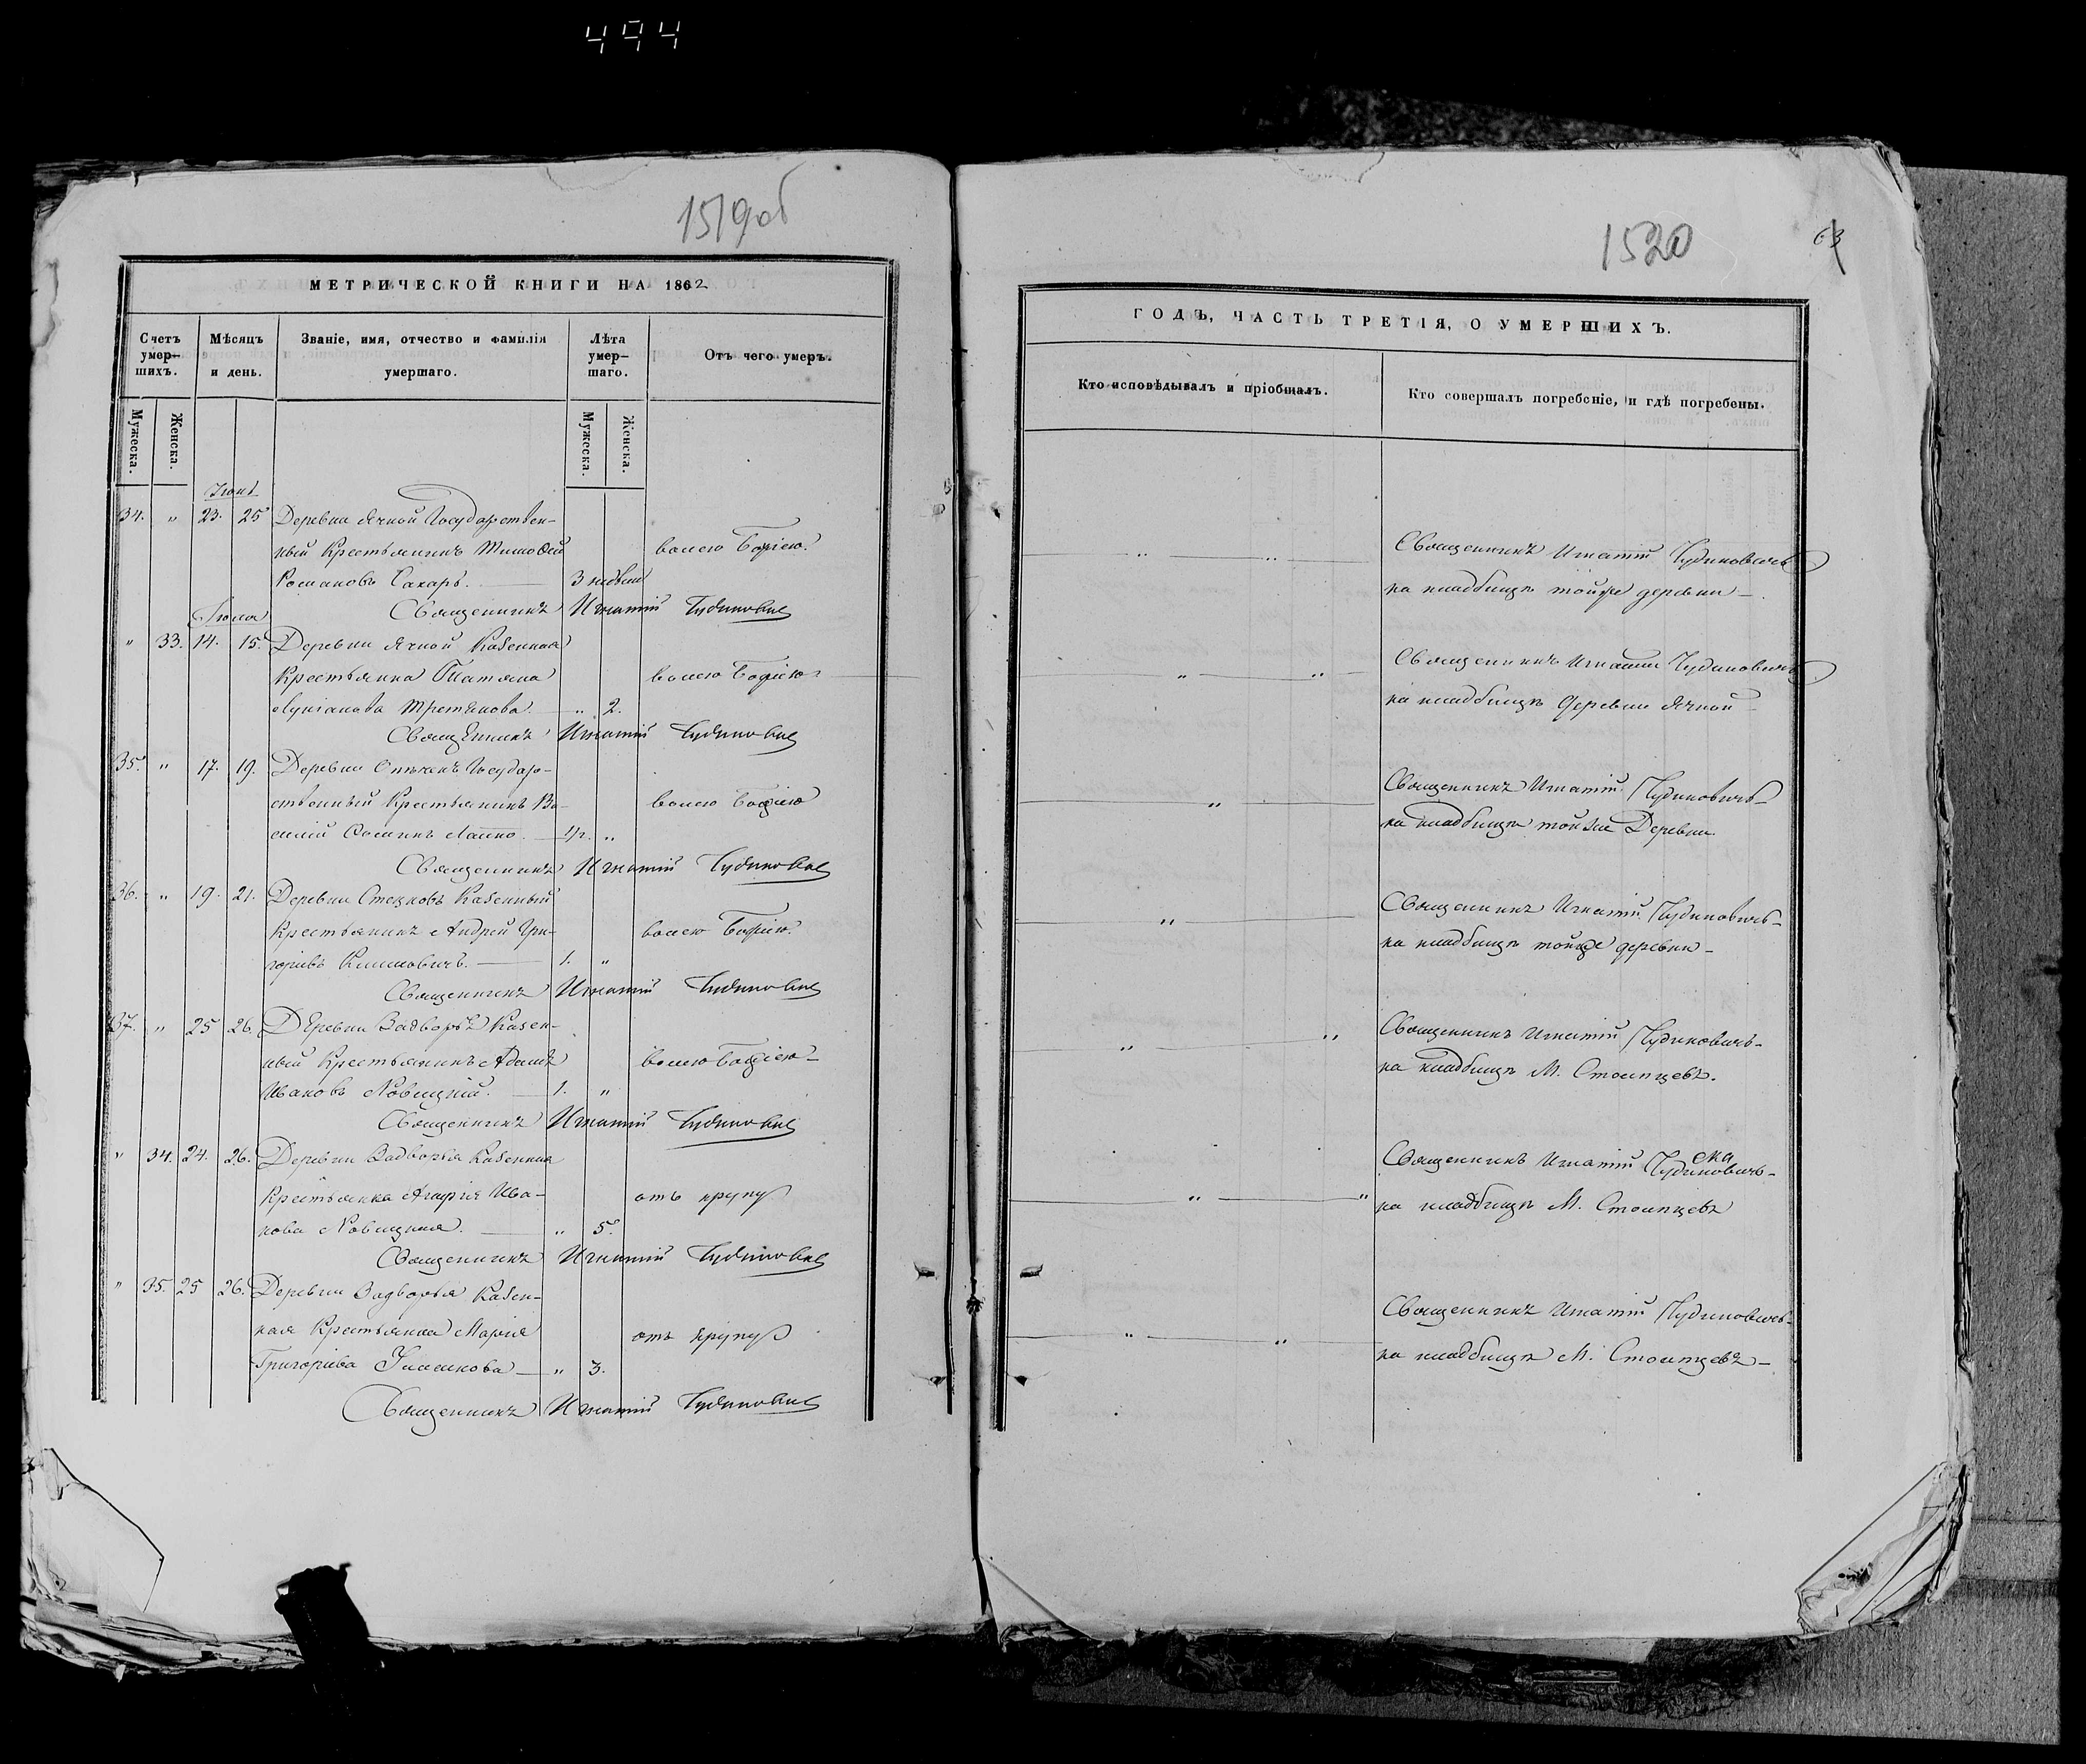 494
1519об
МЕТРИЧЕСКОЙ КНИГИ НА 1862
Счетъ умер-шихъ.
Мѣсяцъ и день.
Званіе, имя, отчество и фамилія умершаго.
Лѣта умер-шаго.
Отъ чего умеръ.
Мужеска.
Женска.
Мужеска.
Женска.
34. " 23. 25 Деревни Ячной Государствен-
ный Крестьянинъ Тимофей волею Божіею.
Романовъ Сахаръ. 3 недѣли
Священникъ Игнатій
Іюля
" 33. 14. 15. Деревни Ячной Казенная
Крестьянка Татьяна волею Божіею
Лукіанова Третьякова. " 2.
Священникъ Игнатій
35. " 17. 19. Деревни Государ-
ственный Крестьянинъ Ва- волею Божіею
силій Лапко. "
Священникъ Игнатій
36. " 19. 21. Деревни Стецковъ Казенный
Крестьянинъ Андрей Гри- волею Божіею.
горіевъ Климовичъ. 1. "
Священникъ Игнатій
37. " 25 26. Деревни Задворье Казен-
ный Крестьянинъ Адамъ волею Божіею
Ивановъ Новицкій. 1. "
Священникъ Игнатій
" 34. 24. 26. Деревни Задворья Казенная
Крестьянка Ива- отъ крупу
нова Новицкая. " 5.
Священникъ Игнатій
" 35. 25 26. Деревни Задворья Казен-
ная Крестьянка Марія отъ крупу
Григоріева " 3.
Священникъ Игнатій
1520
63
ГОДЪ, ЧАСТЬ ТРЕТІЯ, О УМЕРШИХЪ.
Кто исповѣдывалъ и пріобщалъ.
Кто совершалъ погребеніе, и гдѣ погребены.
" " Священникъ Игнатій
на кладбищѣ тойже деревни
" " Священникъ Игнатій
на кладбищѣ деревни Ячной
" Священникъ Игнатій
на кладбищѣ тойже Деревни.
" Священникъ Игнатій
на кладбищѣ тойже деревни
" " Священникъ Игнатій
на кладбищѣ М. Столпцевъ.
Священникъ Игнатій
" " на кладбищѣ М. Столпцевъ
Священникъ Игнатій
" " на кладбищѣ М. Столпцевъ